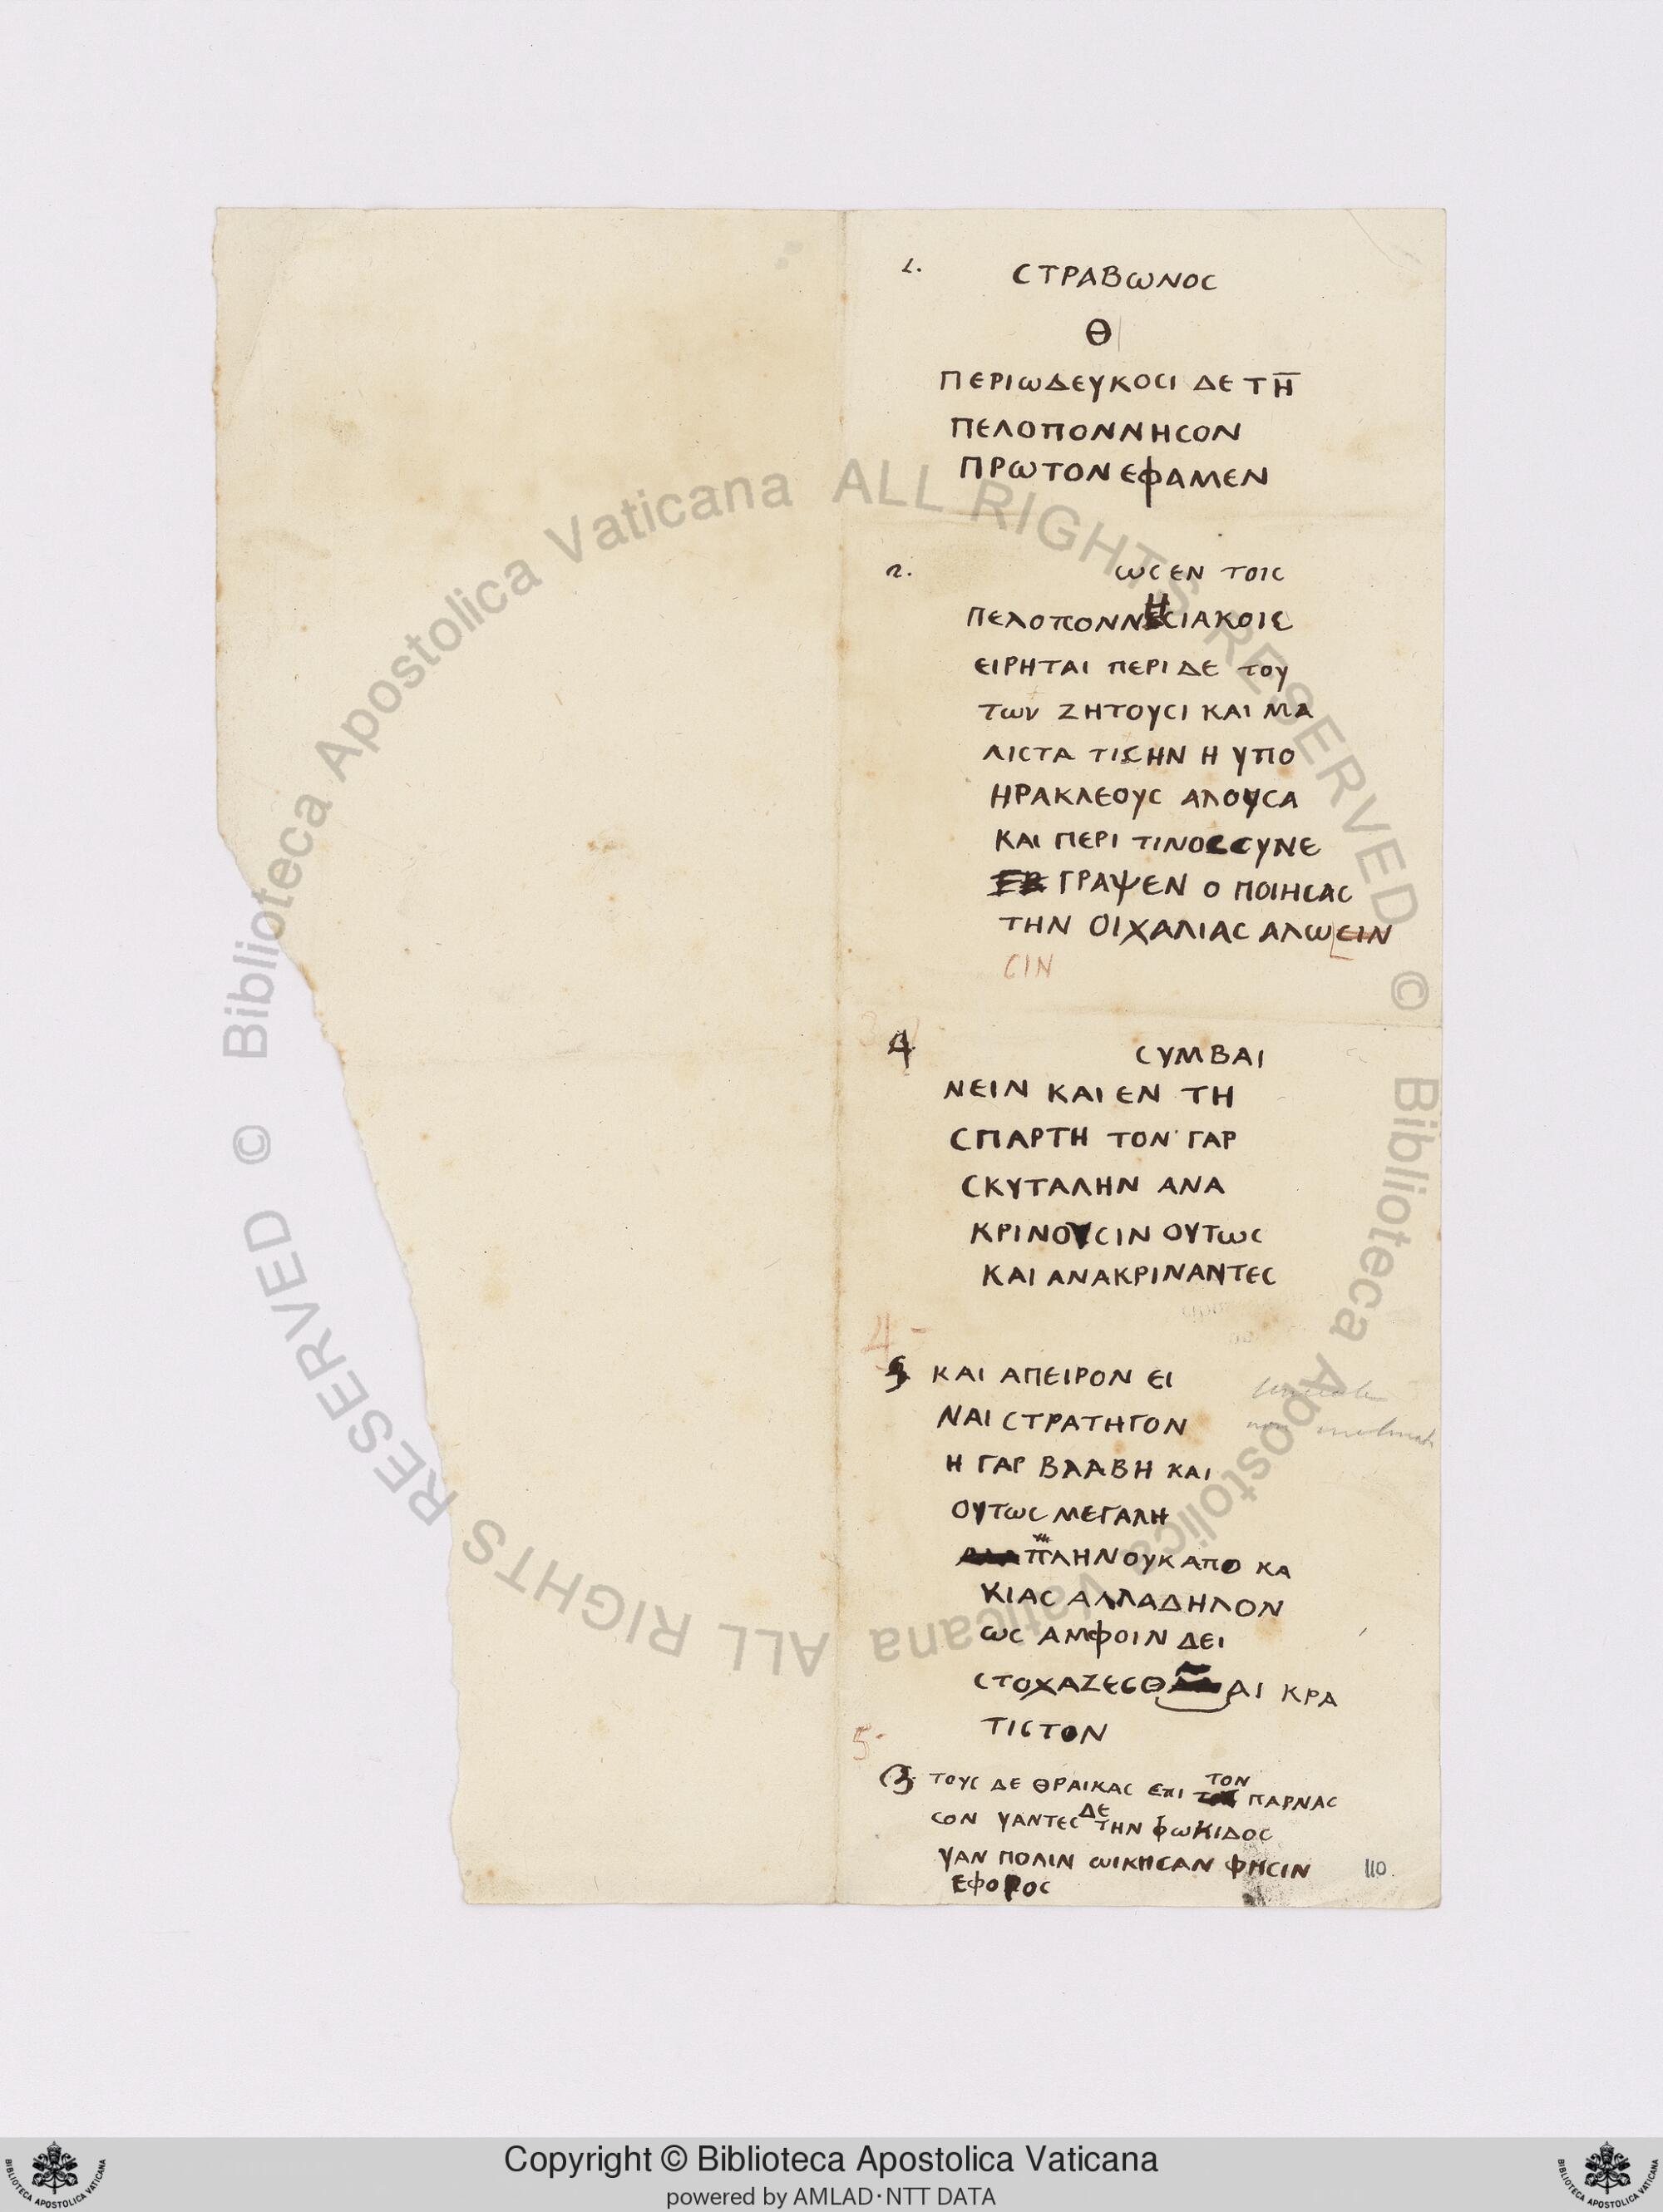 1. CΤΡΑΒωΝΟC
Θ
ΠΕΡΙωΔΕΥΚΟCΙ ΔΕ ΤΗ̅
ΠΕΛΟΠΟΝΝΗCΟΝ
ΠΡωΤΟΝ ΕΦΑΜΕΝ
2. ωC ΕΝ ΤΟΙC
ΠΕΛΟΠΟΝΝΗCΙΑΚΟΙC
ΕΙΡΗΤΑΙ ΠΕΡΙ ΔΕ ΤΟΥ
ΤωΝ ΖΗΤΟΥCΙ ΚΑΙ ΜΑ
ΛΙCΤΑ ΤΙC ΗΝ Η ΥΠΟ
ΗΡΑΚΛΕΟΥC ΑΛΟΥCΑ
ΚΑΙ ΠΕΡΙ ΤΙΝΟC CΥΝΕ
ΓΡΑΨΕΝ Ο ΠΟΙΗCΑC
ΤΗΝ ΟΙΧΑΛΙΑC ΑΛωCΙΝ
CΙΝ
4 CΥΜΒΑΙ
ΝΕΙΝ ΚΑΙ ΕΝ ΤΗ
CΠΑΡΤΗ ΤΟΝ ΓΑΡ
CΚΥΤΑΛΗΝ ΑΝΑ
ΚΡΙΝΟΥCΙΝ ΟΥΤωC
ΚΑΙ ΑΝΑΚΡΙΝΑΝΤΕC
4-
ΚΑΙ ΑΠΕΙΡΟΝ ΕΙ
ΝΑΙ CΤΡΑΤΗΓΟΝ
Η ΓΑΡ ΒΛΑΒΗ ΚΑΙ
ΟΥΤωC ΜΕΓΑΛΗ
ΠΛΗΝ ΟΥΚ ΑΠΟ ΚΑ
ΚΙΑC ΑΛΛΑΔΗΛΟΝ
ωC ΑΜΦΟΙΝ ΔΕΙ
CΤΟΧΑΖΕCΘΑΙ ΚΡΑ
ΤΙCΤΟΝ
5-
ΤΟΥC ΔΕ ΘΡΑΙΚΑC ΕΠΙ ΤΟΝ ΠΑΡΝΑC
CΟΝ ΥΑΝΤΕC ΔΕ ΤΗΝ ΦωΚΙΔΟC
ΥΑΝ ΠΟΛΙΝ ωΙΚΗCΑΝ ΦΗCΙΝ
ΕΦΟΡΟC
110.
© Biblioteca Apostolica Vaticana ALL RIGHTS RESERVED © Biblioteca Apostolica Vaticana ALL RIGHTS RESERVED
Copyright © Biblioteca Apostolica Vaticana
powered by AMLAD·NTT DATA
BIBLIOTECA APOSTOLICA VATICANA
BIBLIOTECA APOSTOLICA VATICANA